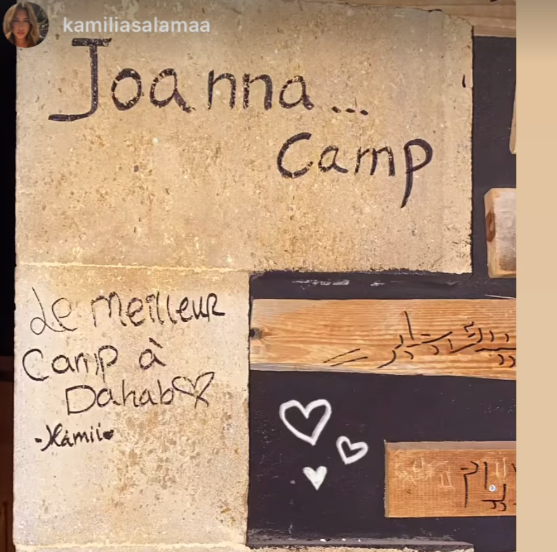 kamiliasalamaa
Joanna...
Camp
Le meilleur
Camp à
Dahab♡
-Kamii♥